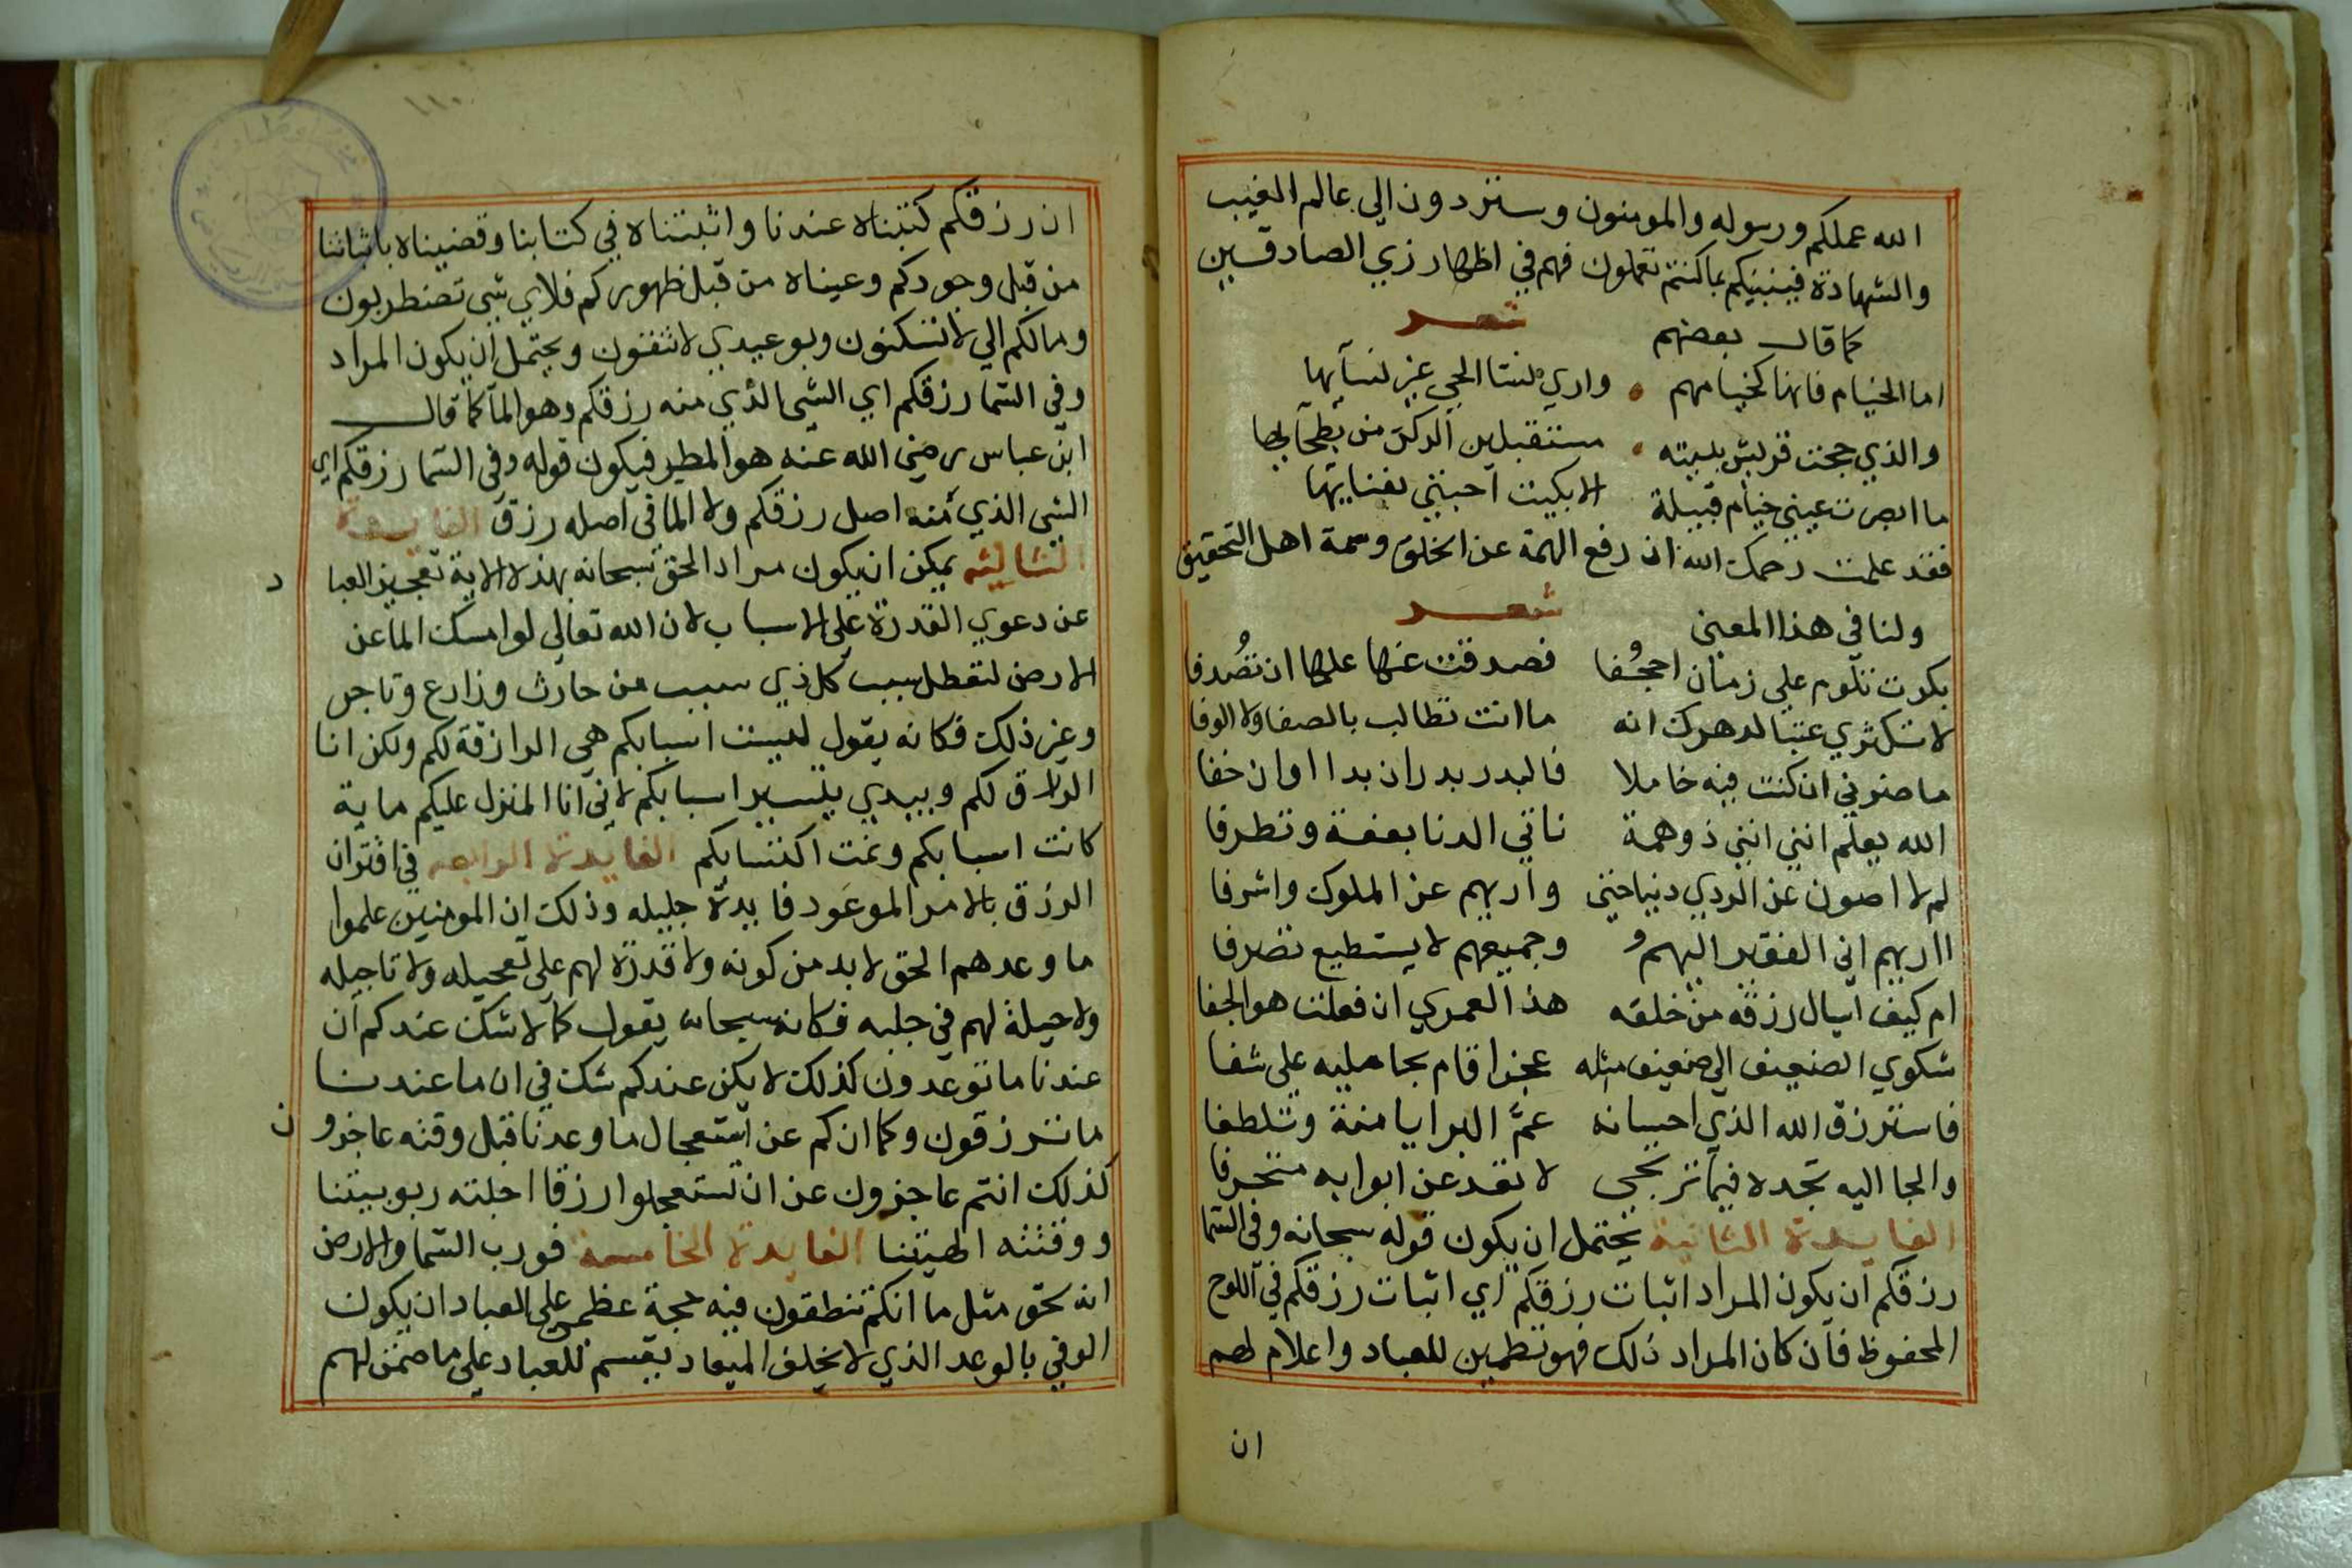 الله عملكم ورسوله والمومنون وستردون الى عالم الغيب
والشهادة فينبيكم بما كنتم تعملون فهم في اظهار زي الصادقين
كما قال بعضهم شعر
اما الخيام فانها كخيامهم واري نسا الحي غير نسآيها
والذي حجت قريش بيته مستقبلين الركن من بطحآيها
ما ابصرت عيني خيام قبيلة الا بكيت احبتي بفنايها
فقد علمت رحمك الله ان رفع الهمة عن الخلق وسمة اهل التحقيق
ولنا في هذا المعنى شعر
بكرت تلوم على زمان اجحفا فصدفت عنها علها ان تصدفا
لا تكثري عتبا لدهرك انه ما انت تطالب بالصفا ولا الوفا
ما ضرني ان كنت فيه خاملا فالبدر بدر ان بدا او ان خفا
الله يعلم انني انني ذو همة تاتي الدنا بعفة وتطرفا
لم لا اصون عن الردي دنياجتي واريهم عز الملوك واشرفا
ااريهم اني الفقير اليهم وجميعهم لا يستطيع تصرفا
ام كيف اسال رزقه من خلقه هذا لعمركي ان فعلت هو الجفا
شكوي الضعيف الى ضعيف مثله عجز اقام بحامليه على شفا
فاسترزق الله الذي احسانه عمَّ البرايا منة وتلطفا
والجا اليه تجده فيما ترتجي لا تعد عن ابوابه متحرفا
الفايدة الثانية يحتمل ان يكون قوله سبحانه وفي السما
رزقكم ان يكون المراد اثبات رزقكم اي اثبات رزقكم في اللوح
المحفوظ فان كان المراد ذلك فهو تطمين للعباد واعلام لهم
ان
١١٠
ان رزقكم كتبناه عندنا واثبتناه في كتابنا وقضيناه باثباتنا
من قبل وجودكم وعيناه من قبل ظهوركم فلاي شي تضطربون
ومالكم الي لا تسكنون وبوعيدي لا تثقون ويحتمل ان يكون المراد
وفي السما رزقكم اي الشي الذي منه رزقكم وهو المآ كما قال
ابن عباس رضي الله عنه هو المطر فيكون قوله وفي السما رزقكم اي
الشي الذي منه اصل رزقكم ولا الما في اصله رزق الفايدة
الثالثه يمكن ان يكون مراد الحق سبحانه بهذه الاية تعجيز العبا د
عن دعوي القدرة على الاسباب لان الله تعالى لو امسك الما عن
الارض لتعطل سبب كل ذي سبب من حارث وزارع وتاجر
وغير ذلك فكانه يقول ليست اسبابكم هي الرازقة لكم ولكن انا
الرازق لكم وبيدي تيسير اسبابكم لاني انا المنزل عليكم ما به
كانت اسبابكم وتمت اكتسابكم الفايدة الرابعه في اقتران
الرزق بالامر الموعود فايدة جليله وذلك ان المومنين علموا
ما وعدهم الحق لا بد من كونه ولا قدرة لهم على تعجيله ولا تاجيله
ولا حيلة لهم في جلبه فكانه سبحانه يقول كما لا شك عندكم ان
عندنا ما توعدون كذلك لا يكن عندكم شك في ان ما عندنا
ما ترزقون وكما انكم عن استعجال ما وعدنا قبل وقته عاجزو ن
كذلك انتم عاجزون عن ان تستعجلوا رزقا اجلته ربوبيتنا
ووقتته الهيتنا الفايدة الخامسة فورب السما والارض
انه لحق مثل ما انكم تنطقون فيه حجة عظمى على العباد ان يكون
الوفي بالوعد الذي لا يخلف الميعاد يقسم للعباد على ما ضمن لهم